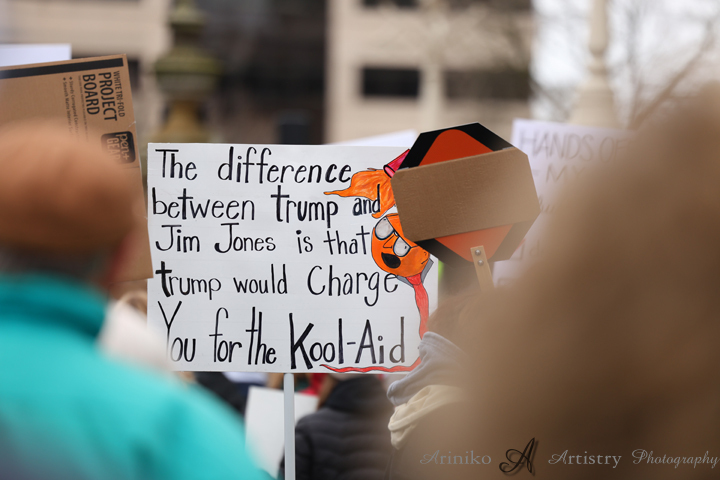 WHITE TRI-FOLD
PROJECT
BOARD
The difference
between trump and
Jim Jones is that
trump would Charge
You for the Kool-Aid
HANDS OF
Ariniko A Artistry Photography